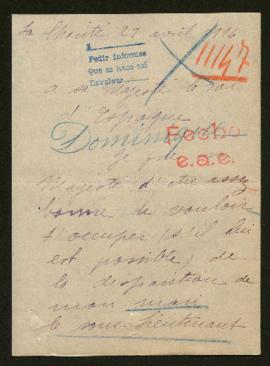 La Charité 27 avril 1916
11147
Pedir informes
Que se hace así
Devolver
a sa Majesté le roi
d'Espagne
Fecho
e.a.e.
Je prie
Majesté d'être assez
bonne de vouloir
s'occuper (s'il lui
est possible) de
la disparition de
mon mari
le sous-lieutenant